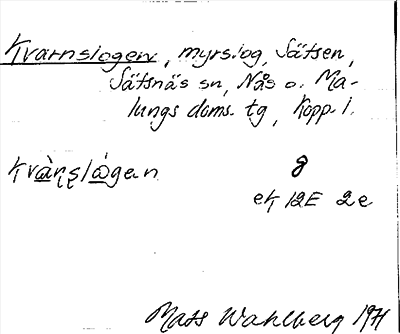 Kvarnslogen, myrslog, Sätsen,
Sätsnäs sn, Nås o. Ma-
lungs doms. tg, Kopp. l.
Kvà̱ṇṣló̱gen 8
ek 12E 2e
Mats Wahlberg 1971